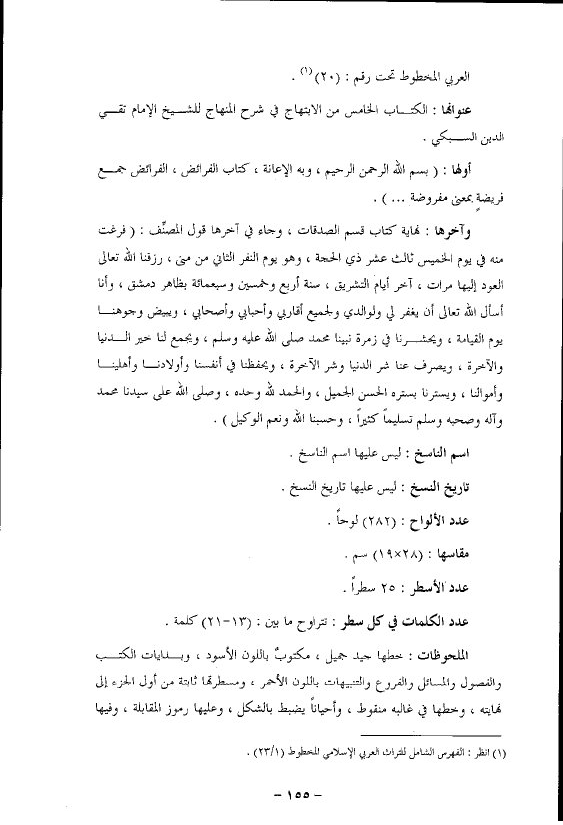 العربي المخطوط تحت رقم : (٢٠)(١) .
عنوانها : الكتـــاب الخامس من الابتهاج في شرح المنهاج للشـــيخ الإمام تقـــي
الدين الســـبكي .
أولها : ( بسم الله الرحمن الرحيم ، وبه الإعانة ، كتاب الفرائض ، الفرائض جمـــع
فريضةٍ بمعنى مفروضة ... ) .
وآخرها : نهاية كتاب قسم الصدقات ، وجاء في آخرها قول المصنِّف : ( فرغت
منه في يوم الخميس ثالث عشر ذي الحجة ، وهو يوم النفر الثاني من منى ، رزقنا الله تعالى
العود إليها مرات ، آخر أيام التشريق ، سنة أربع وخمسين وسبعمائة بظاهر دمشق ، وأنا
أسأل الله تعالى أن يغفر لي ولوالدي ولجميع أقاربي وأحبابي وأصحابي ، ويبيض وجوهنـــا
يوم القيامة ، ويحشـــرنا في زمرة نبينا محمد صلى الله عليه وسلم ، ويجمع لنا خير الـــدنيا
والآخرة ، ويصرف عنا شر الدنيا وشر الآخرة ، ويحفظنا في أنفسنا وأولادنـــا وأهلينـــا
وأموالنا ، ويسترنا بستره الحسن الجميل ، والحمد لله وحده ، وصلى الله على سيدنا محمد
وآله وصحبه وسلم تسليماً كثيراً ، وحسبنا الله ونعم الوكيل ) .
اسم الناسخ : ليس عليها اسم الناسخ .
تاريخ النسخ : ليس عليها تاريخ النسخ .
عدد الألواح : (٢٨٢) لوحاً .
مقاسها : (٢٨×١٩) سم .
عدد الأسطر : ٢٥ سطراً .
عدد الكلمات في كل سطر : تتراوح ما بين : (١٣-٢١) كلمة .
الملحوظات : خطها جيد جميل ، مكتوبٌ باللون الأسود ، وبـــدايات الكتـــب
والفصول والمسائل والفروع والتنبيهات باللون الأحمر ، ومسطرتها ثابتة من أول الجزء إلى
نهايته ، وخطها في غالبه منقوط ، وأحياناً يضبط بالشكل ، وعليها رموز المقابلة ، وفيها
(١) انظر : الفهرس الشامل للتراث العربي الإسلامي المخطوط (٢٣/١) .
- ١٥٥ -